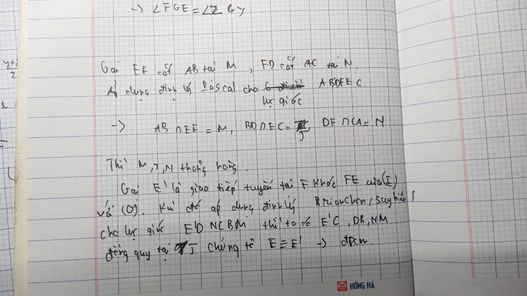 → ∠FGE = ∠ZGY
Gọi EF cắt AB tại M, FD cắt AC tại N.
Áp dụng định lý Pascal cho lục giác ABDFEC
→ AB ∩ EF = M, BD ∩ EC = J, DF ∩ CA = N
Thì M, J, N thẳng hàng.
Gọi E' là giao tiếp tuyến tại F khác FE của (I)
với (O). Khi đó áp dụng định lý Brianchon, suy biến
cho lục giác E'DNCBM thì ta có E'C, DB, NM
đồng quy tại J chứng tỏ E ≡ E' → đpcm.
HỒNG HÀ